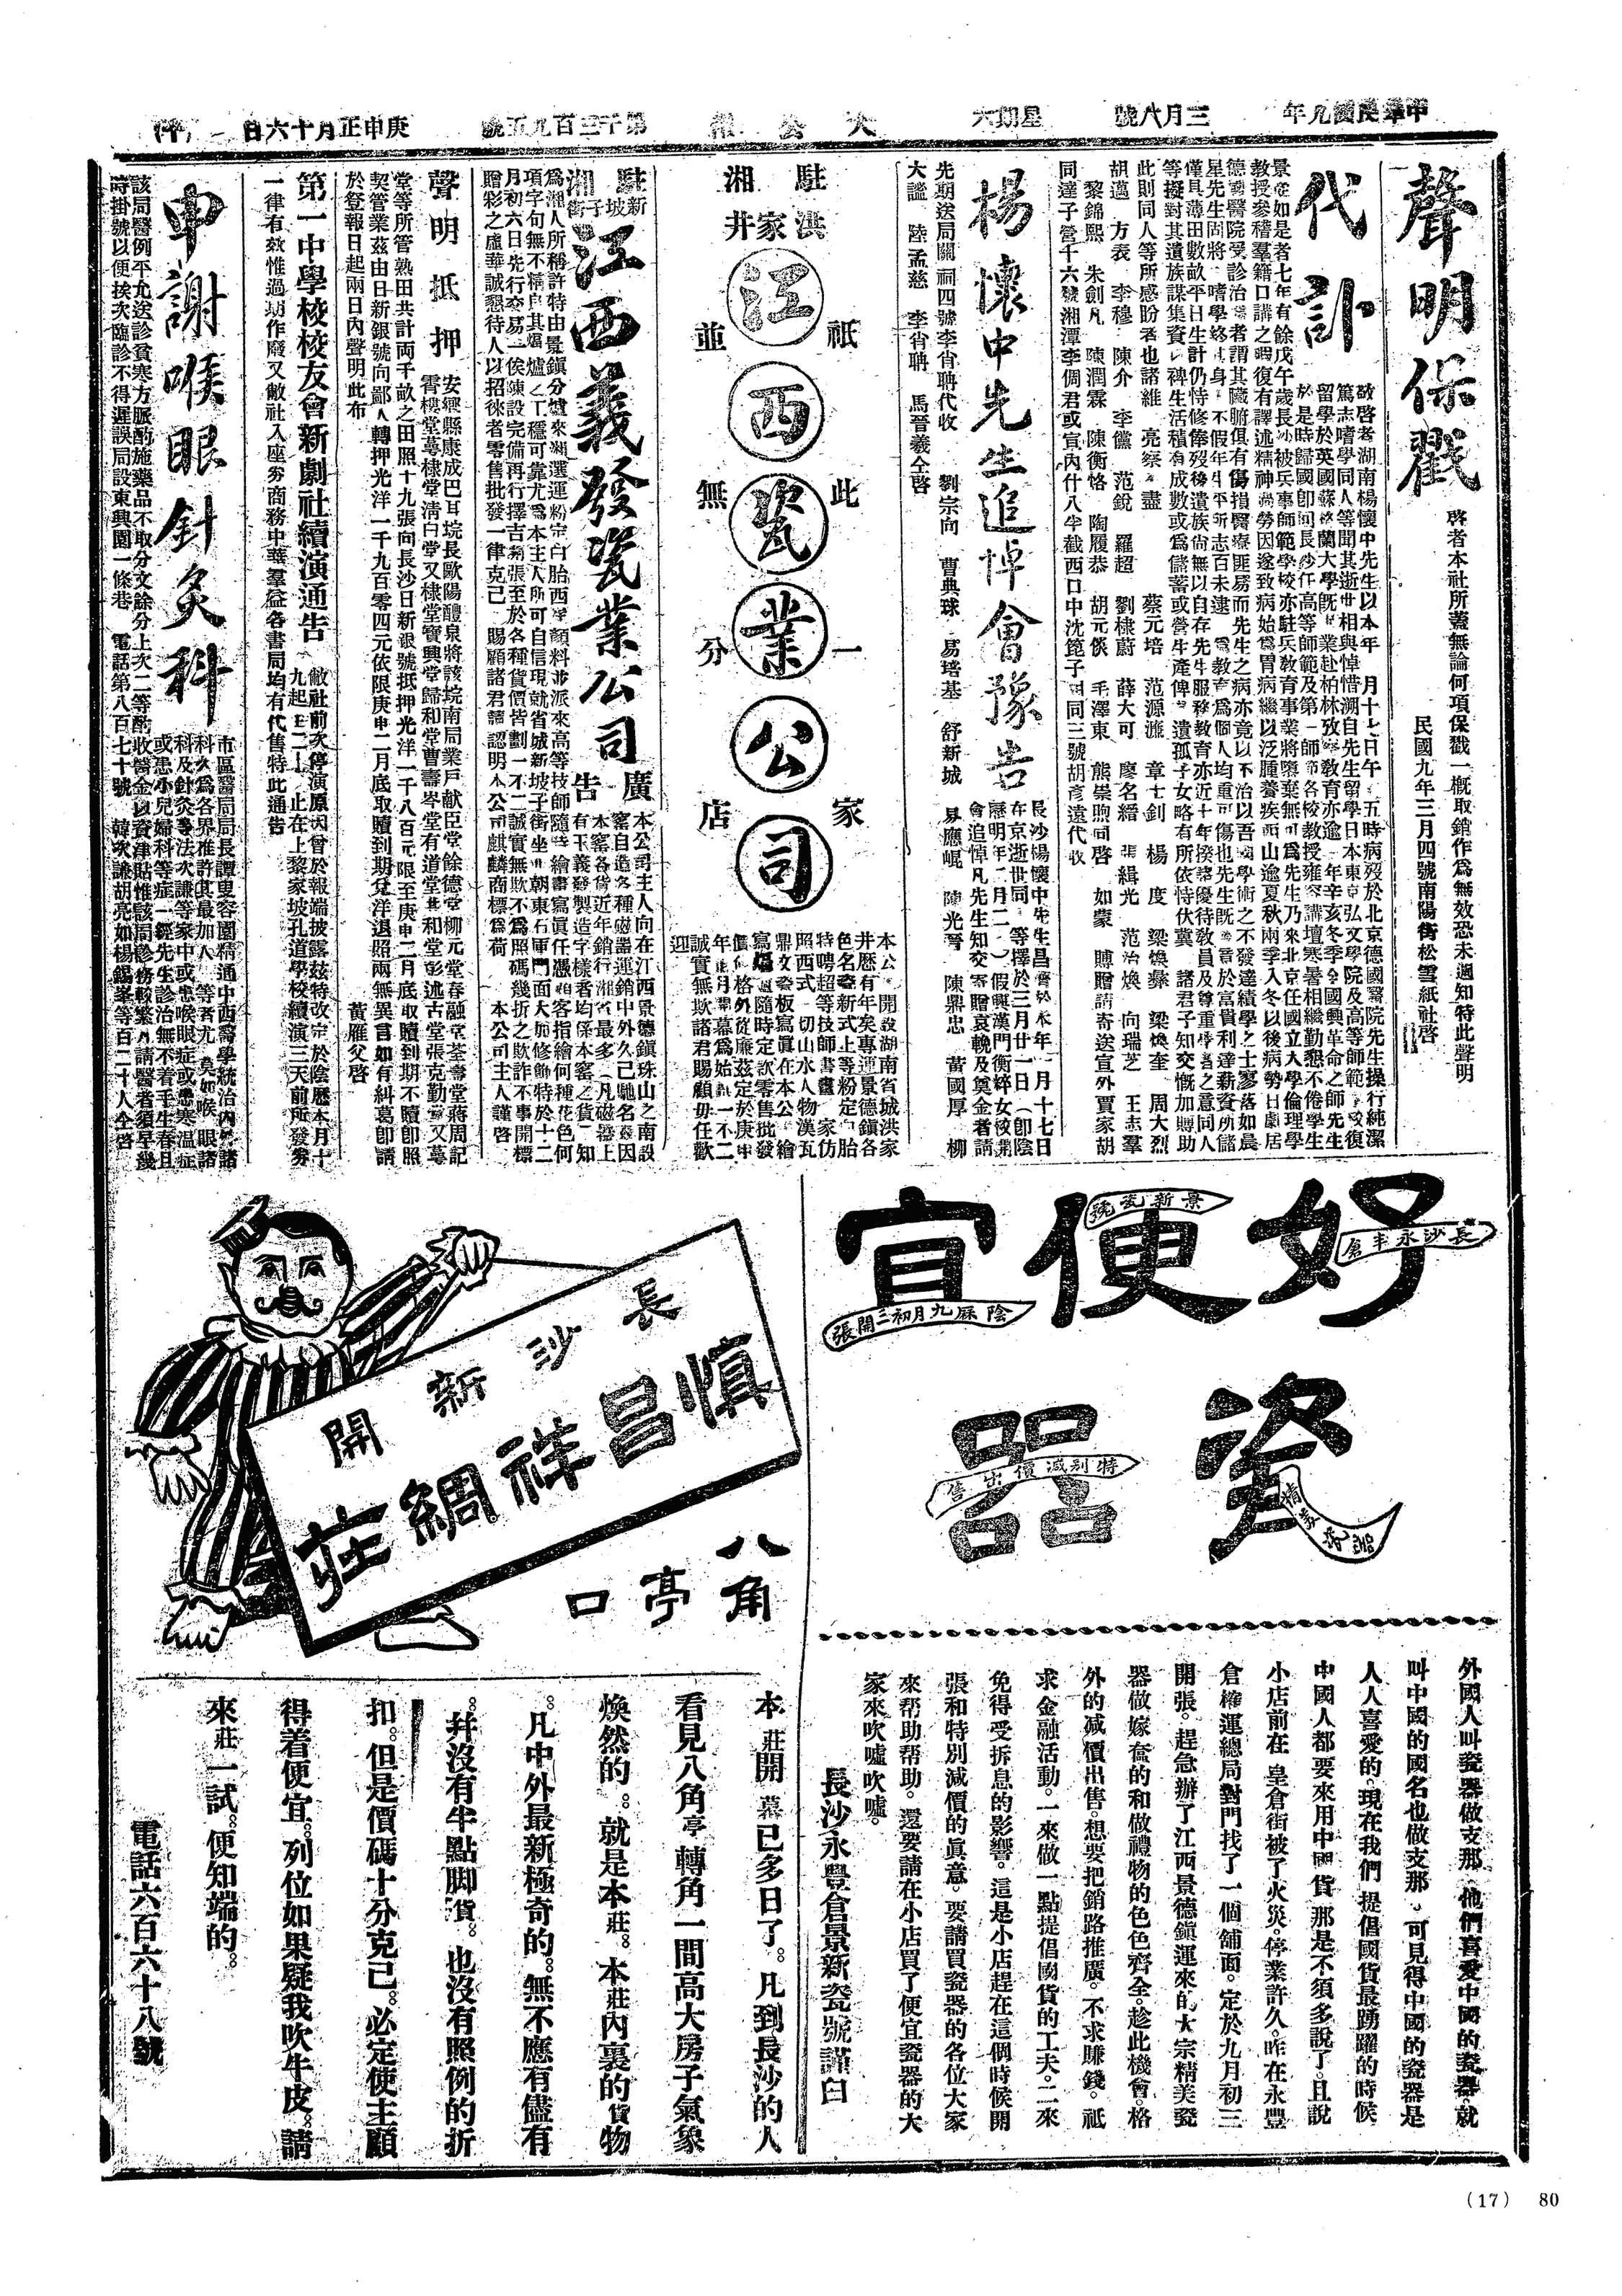 中華民國九年 三月八號 星期六 大公報 第千三百九五號 庚申正月十六日
聲明保戳
啓者本社所蓋無論何項保戳一概取銷作爲無效恐未週知特此聲明
民國九年三月四號南陽街松雪紙社啓
代訃
敬啓者湖南楊懷中先生以本年 月十七日午 五時病歿於北京德國醫院先生操行純潔
篤志嗜學同人等聞其逝世相與悼惜溯自先生留學日本東京弘文學院及高等師範 復
留學於英國蘇格蘭大學既 業赴柏林攷 教育亦逾 年辛亥冬季 國興革命之師先生
於是時歸國卽回長沙任高等師範及第一師範各校教授雍容講壇寒暑相繼勤懇不倦學生
景 如是者七年有餘戊午歲長沙被兵事師範學校亦駐兵教育事業將墮棄無 爲先生乃來北京任國立大學倫理學
教授參稽羣籍口講之暇復有譯述精神 勞因遂致病始爲胃病繼以泛腫養疾西山逾夏秋兩季入冬以後病勢日劇居
德國醫院受診治 者謂其臟腑俱有傷損醫療匪易而先生之病亦竟以不治以吾 學術之不發達績學之士寥落如晨
星先生固將 嗜學終其身 不假年生平所志百未逮 爲教育爲個人均重可傷也先生既 於富貴利達薪資所儲
僅具薄田數畝平日生計仍恃修俸歿後遺族尙無以自存先生服務教育亦近十年揆諸優待敎員及尊重學者之意同人
等擬對其遺族謀集資 碑生活積 成數或爲儲蓄或營生產俾 遺孤子女略有所依恃伏冀 諸君子知交慨加賻助
此則同人等所感盼者也諸維 亮察不盡 蔡元培 范源濂 章士釗 楊 度 梁煥彝 周大烈
胡邁 方表 李穆 陳介 李儻 范銳 羅超 劉棣蔚 薛大可 廖名縉 張緝光 范治煥 向瑞芝 王志羣
黎錦熙 朱劍凡 陳潤霖 陳衡恪 陶履恭 胡元倓 毛澤東 熊崇煦同啓 如蒙 賻贈請寄送宣外賈家胡
同達子營十六號湘潭李倜君或宣內什八半截西口中沈篦子胡同三號胡彥遠代收
楊懷中先生追悼會豫告
長沙楊懷中先生昌濟於本年 月十七日
在京逝世同 等擇於三月廿一日(卽陰
歷明年二月二 )假興漢門衡粹女校開
會追悼凡先生知交寄贈哀輓及奠金者請
先期送局關祠四號李肖聃代收 劉宗向 曹典球 易培基 舒新城 易應崐 陳光晉 陳鼎忠 黃國厚 柳
大謐 陸孟慈 李肖聃 馬晉羲仝啓
駐湘
洪家井
江西瓷業公司
祇此一家
並無分店
本公 開設湖南省城洪家
井歷有年矣專運景德鎮各
色名瓷新式上等粉定 胎
特聘超等技師書畫 家仿
照西式一切山水人物漢瓦
鼎文瓷板寫眞在本公 繪
寫 隨時定 零售批發
價 格外從廉茲定於庚申
年 月開幕爲始 一不二
誠實無欺諸君賜顧毋任歡
迎
駐湘
新坡子街
江西義發瓷業公司
廣告
本公司主人向在江西景德鎮珠山之南設
窰自造各種磁器運銷中外久已馳名 因
本窰各貨近年銷行湘省最多(凡磁器上
有玉義發製造字樣者均係本窰之貨)知
爲湘人所稱許特由景鎮分爐來湘選運粉定白胎西洋顏料並派來高等技師隨時繪畫寫眞任憑顧客指繪何種花色何
項字句無不精良其爐爐之工穩可靠尤爲本主人所可自信現就省城新坡子街坐北朝東石庫門面大加修飾特於十二
月初六日先行交易一俟陳設完備再行擇吉開張至於各種貨價皆劃一不二誠實無欺不爲照碼幾折之欺詐不事開標
贈彩之虛華誠懇待人以招徠者零售批發一律克己 賜顧諸君請認明本公司麒麟商標爲荷 本公司主人謹啓
聲明抵押
安鄉縣康成巴耳垸長歐陽醴泉將該垸南局業戶獻臣堂餘德堂柳元堂春融堂荃 堂蔣周記
霄樓堂蕚棣堂淸白堂又棣堂寳興堂歸和堂曹壽岑堂有道堂其和堂彭述古堂張克勤堂又蕚
堂等所管熟田共計両千畝之田照十九張向長沙日新銀號抵押光洋一千八百元限至庚申二月底取贖到期不贖卽照
契管業茲由日新銀號向鄙人轉押光洋一千九百零四元依限庚申二月底取贖到期兌洋退照兩無異言如有糾葛卽請
於登報日起兩日內聲明此布 黃雁父啓
第一中學校校友會新劇社續演通告
敝社前次停演原因曾於報端披露茲特改定於陰歷本月十
九起至二十一止在上黎家坡孔道學校續演三天前所發券
一律有效惟過期作廢又敝社入座券商務中華羣益各書局均有代售特此通告
申謝喉眼針灸科
市區醫局局長譚叟容圃精通中西醫學統治內外諸
科久爲各界推許其最加人 等者尤莫如喉眼諸
科及針灸等法次謙等家中或患喉眼症或患寒溫症
或患小兒婦科等症一經先生診治無不着手生春且
該局醫例平允送診貧寒方脈酌施藥品不取分文餘分上次二等酌收醫金以資津貼惟該局診務較繁凡請醫者須早幾
時掛號以便挨次臨診不得遲誤局設東興園一條巷 電話第八百七十號 韓次謙胡亮如楊錫峯等百二十人仝啓
好便宜瓷器
長沙永丰倉
景新瓷號
陰厤九月初三開張
精美瓷器
特別減價出售
外國人叫瓷器做支那。他們喜愛中國的瓷器。就
叫中國的國名也做支那。可見得中國的瓷器是
人人喜愛的。現在我們 提倡國貨最踴躍的時候
中國人都要來用中國貨 那是不須多說了。且說
小店前在 皇倉街被了火災。停業許久。昨在永豐
倉榷運總局對門找了一個舖面。定於九月初三
開張。趕急辦了江西景德鎮運來的大宗精美瓷
器做嫁奩的和做禮物的色色齊全。趁此機會。格
外的減價出售。想要把銷路推廣。不求賺錢。祇
求金融活動。一來做一點提倡國貨的工夫。二來
免得受拆息的影響。這是小店趕在這個時候開
張和特別減價的眞意。要請買瓷器的各位大家
來帮助帮助。還要請在小店買了便宜瓷器的大
家來吹噓吹噓。
長沙永豐倉景新瓷號謹白
長沙新開
慎昌祥綢莊
八角亭口
本莊開幕已多日了。凡到長沙的人
看見八角亭轉角一間高大房子氣象
煥然的。就是本莊。本莊內裏的貨物
。凡中外最新極奇的。無不應有儘有
。幷沒有半點脚貨。也沒有照例的折
扣。但是價碼十分克己。必定使主顧
得着便宜。列位如果疑我吹牛皮。請
來莊一試。便知端的。
電話六百六十八號
(17) 80